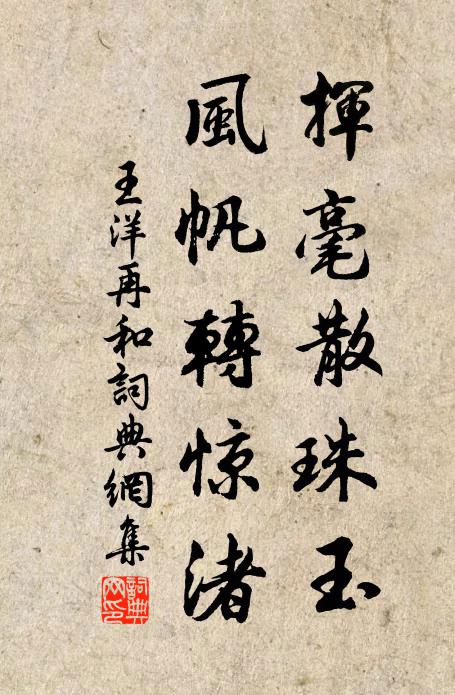 揮毫散珠玉
風帆轉惊渚
王洋再和詞典網集
詞典網印